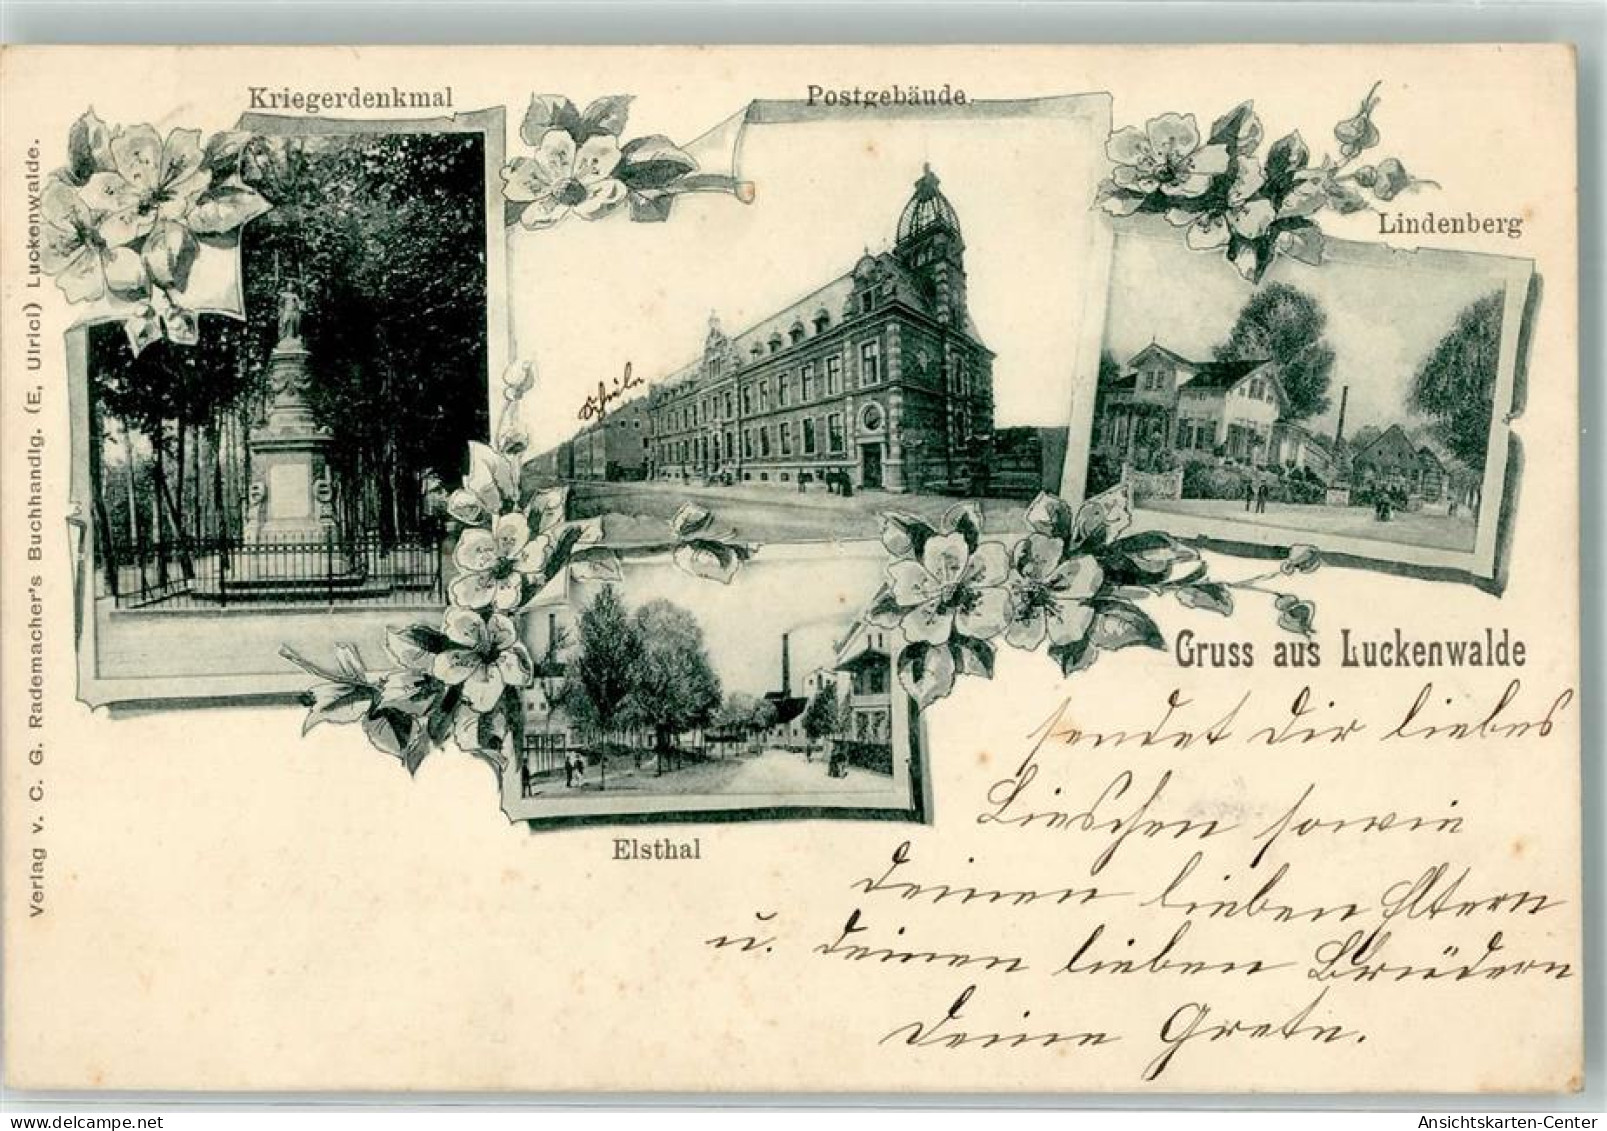 Kriegerdenkmal
Postgebäude
Lindenberg
Schule
Elsthal
Verlag v. C. G. Rademacher's Buchhandlg. (E, Ulrici) Luckenwalde.
Gruss aus Luckenwalde
sendet dir liebes
Lieschen sowie
deinen lieben Eltern
u. deinen lieben Brüdern
Deine Grete.
Ansichtskarten-Center